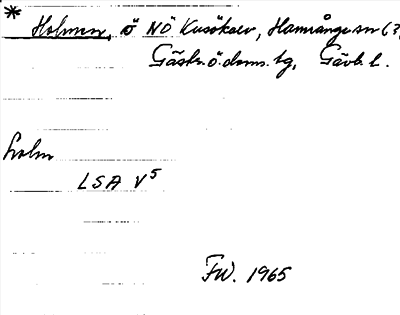 * Holmen, ö NÖ Kusökaev, Hamrånge sn (?)
Gästr. ö. doms. tg, Gävb. l.
holm
LSA V5
FW. 1965